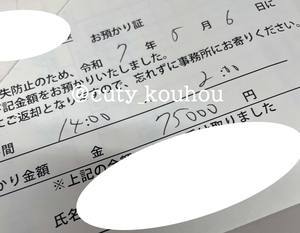 お預かり証
失防止のため、令和 7 年 5 月 6 日に
記金額をお預かりいたしました。
ご返却となりますので、忘れずに事務所にお寄りください。
@cuty_kouhou
間 14:00 2:00
かり金額 金 75000 円
※上記の金 取りました
氏名